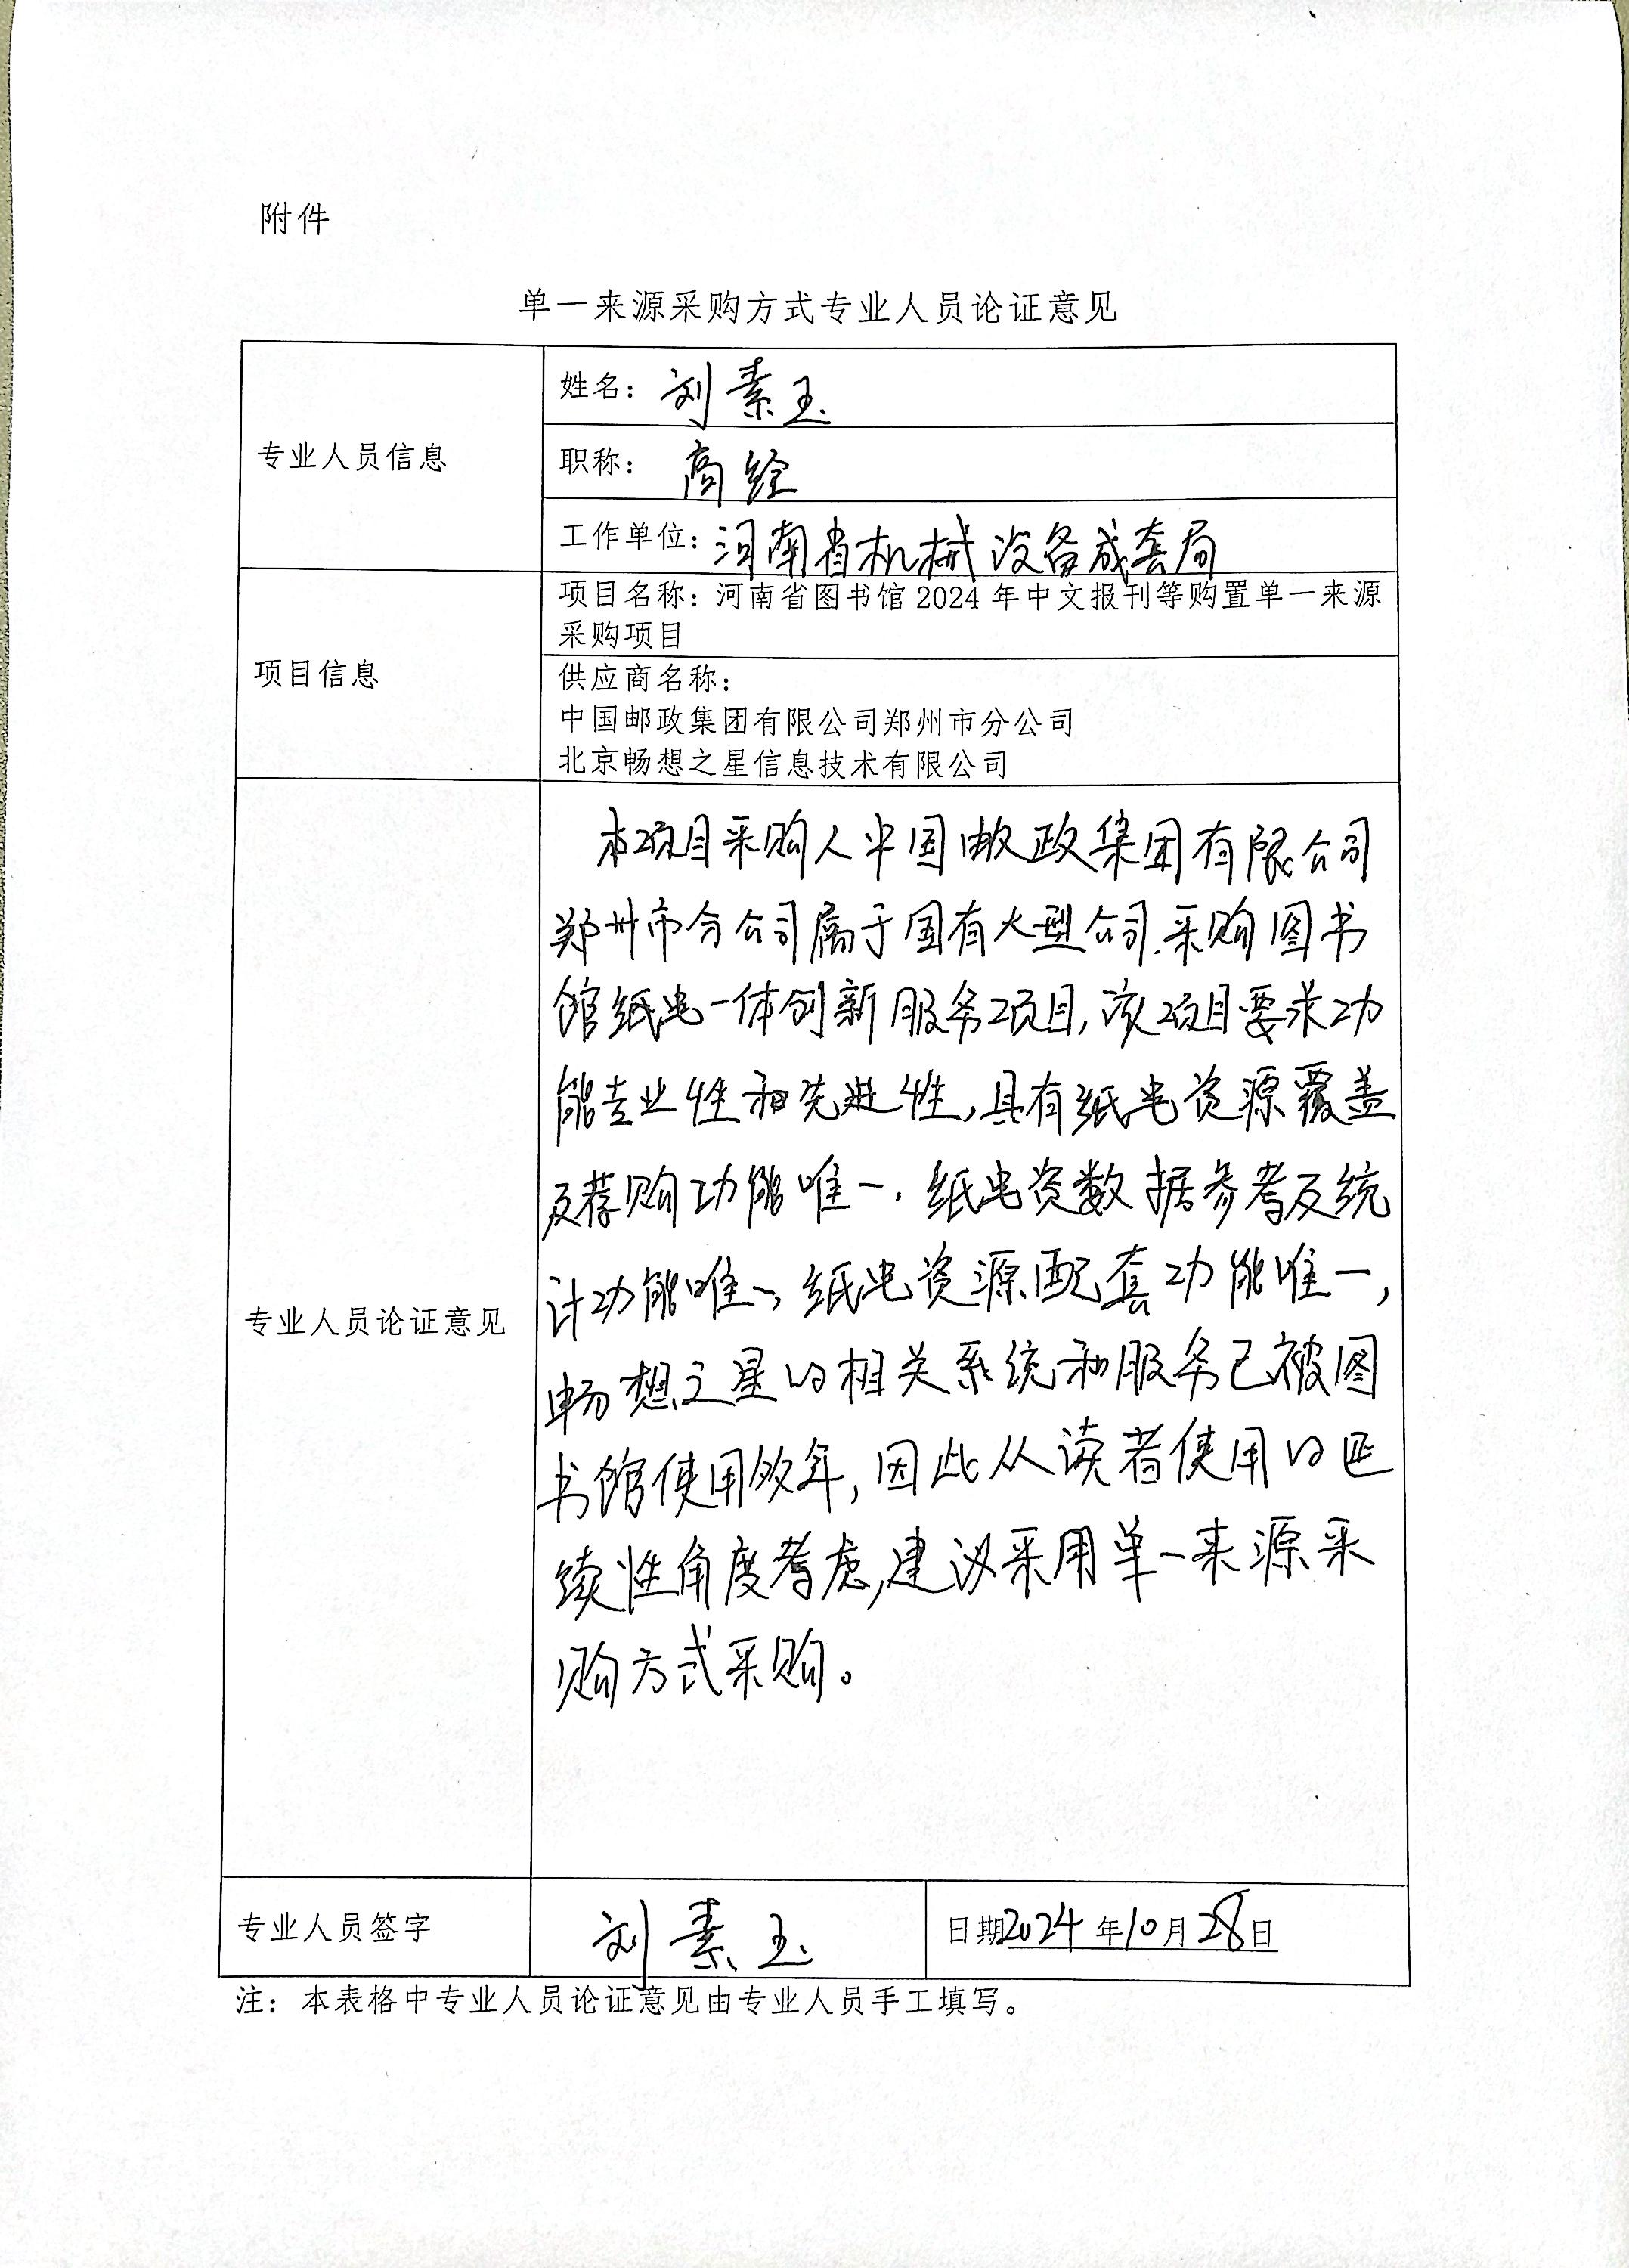 附件
单一来源采购方式专业人员论证意见
专业人员信息
姓名：刘素玉
职称：高经
工作单位：河南省机械设备成套局
项目信息
项目名称：河南省图书馆2024年中文报刊等购置单一来源
采购项目
供应商名称：
中国邮政集团有限公司郑州市分公司
北京畅想之星信息技术有限公司
专业人员论证意见
本项目采购人中国邮政集团有限公司
郑州市分公司属于国有大型公司.采购图书
馆纸电一体创新服务项目,该项目要求功
能专业性和先进性,具有纸电资源覆盖
及荐购功能唯一,纸电资数据参考及统
计功能唯一,纸电资源配套功能唯一,
畅想之星的相关系统和服务已被图
书馆使用多年,因此从读者使用的
续性角度考虑,建议采用单一来源采
购方式采购。
专业人员签字
刘素玉
日期2024年10月28日
注：本表格中专业人员论证意见由专业人员手工填写。